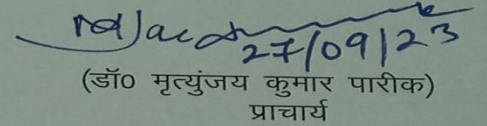 27/09/23
(डॉ0 मृत्युंजय कुमार पारीक)
प्राचार्य